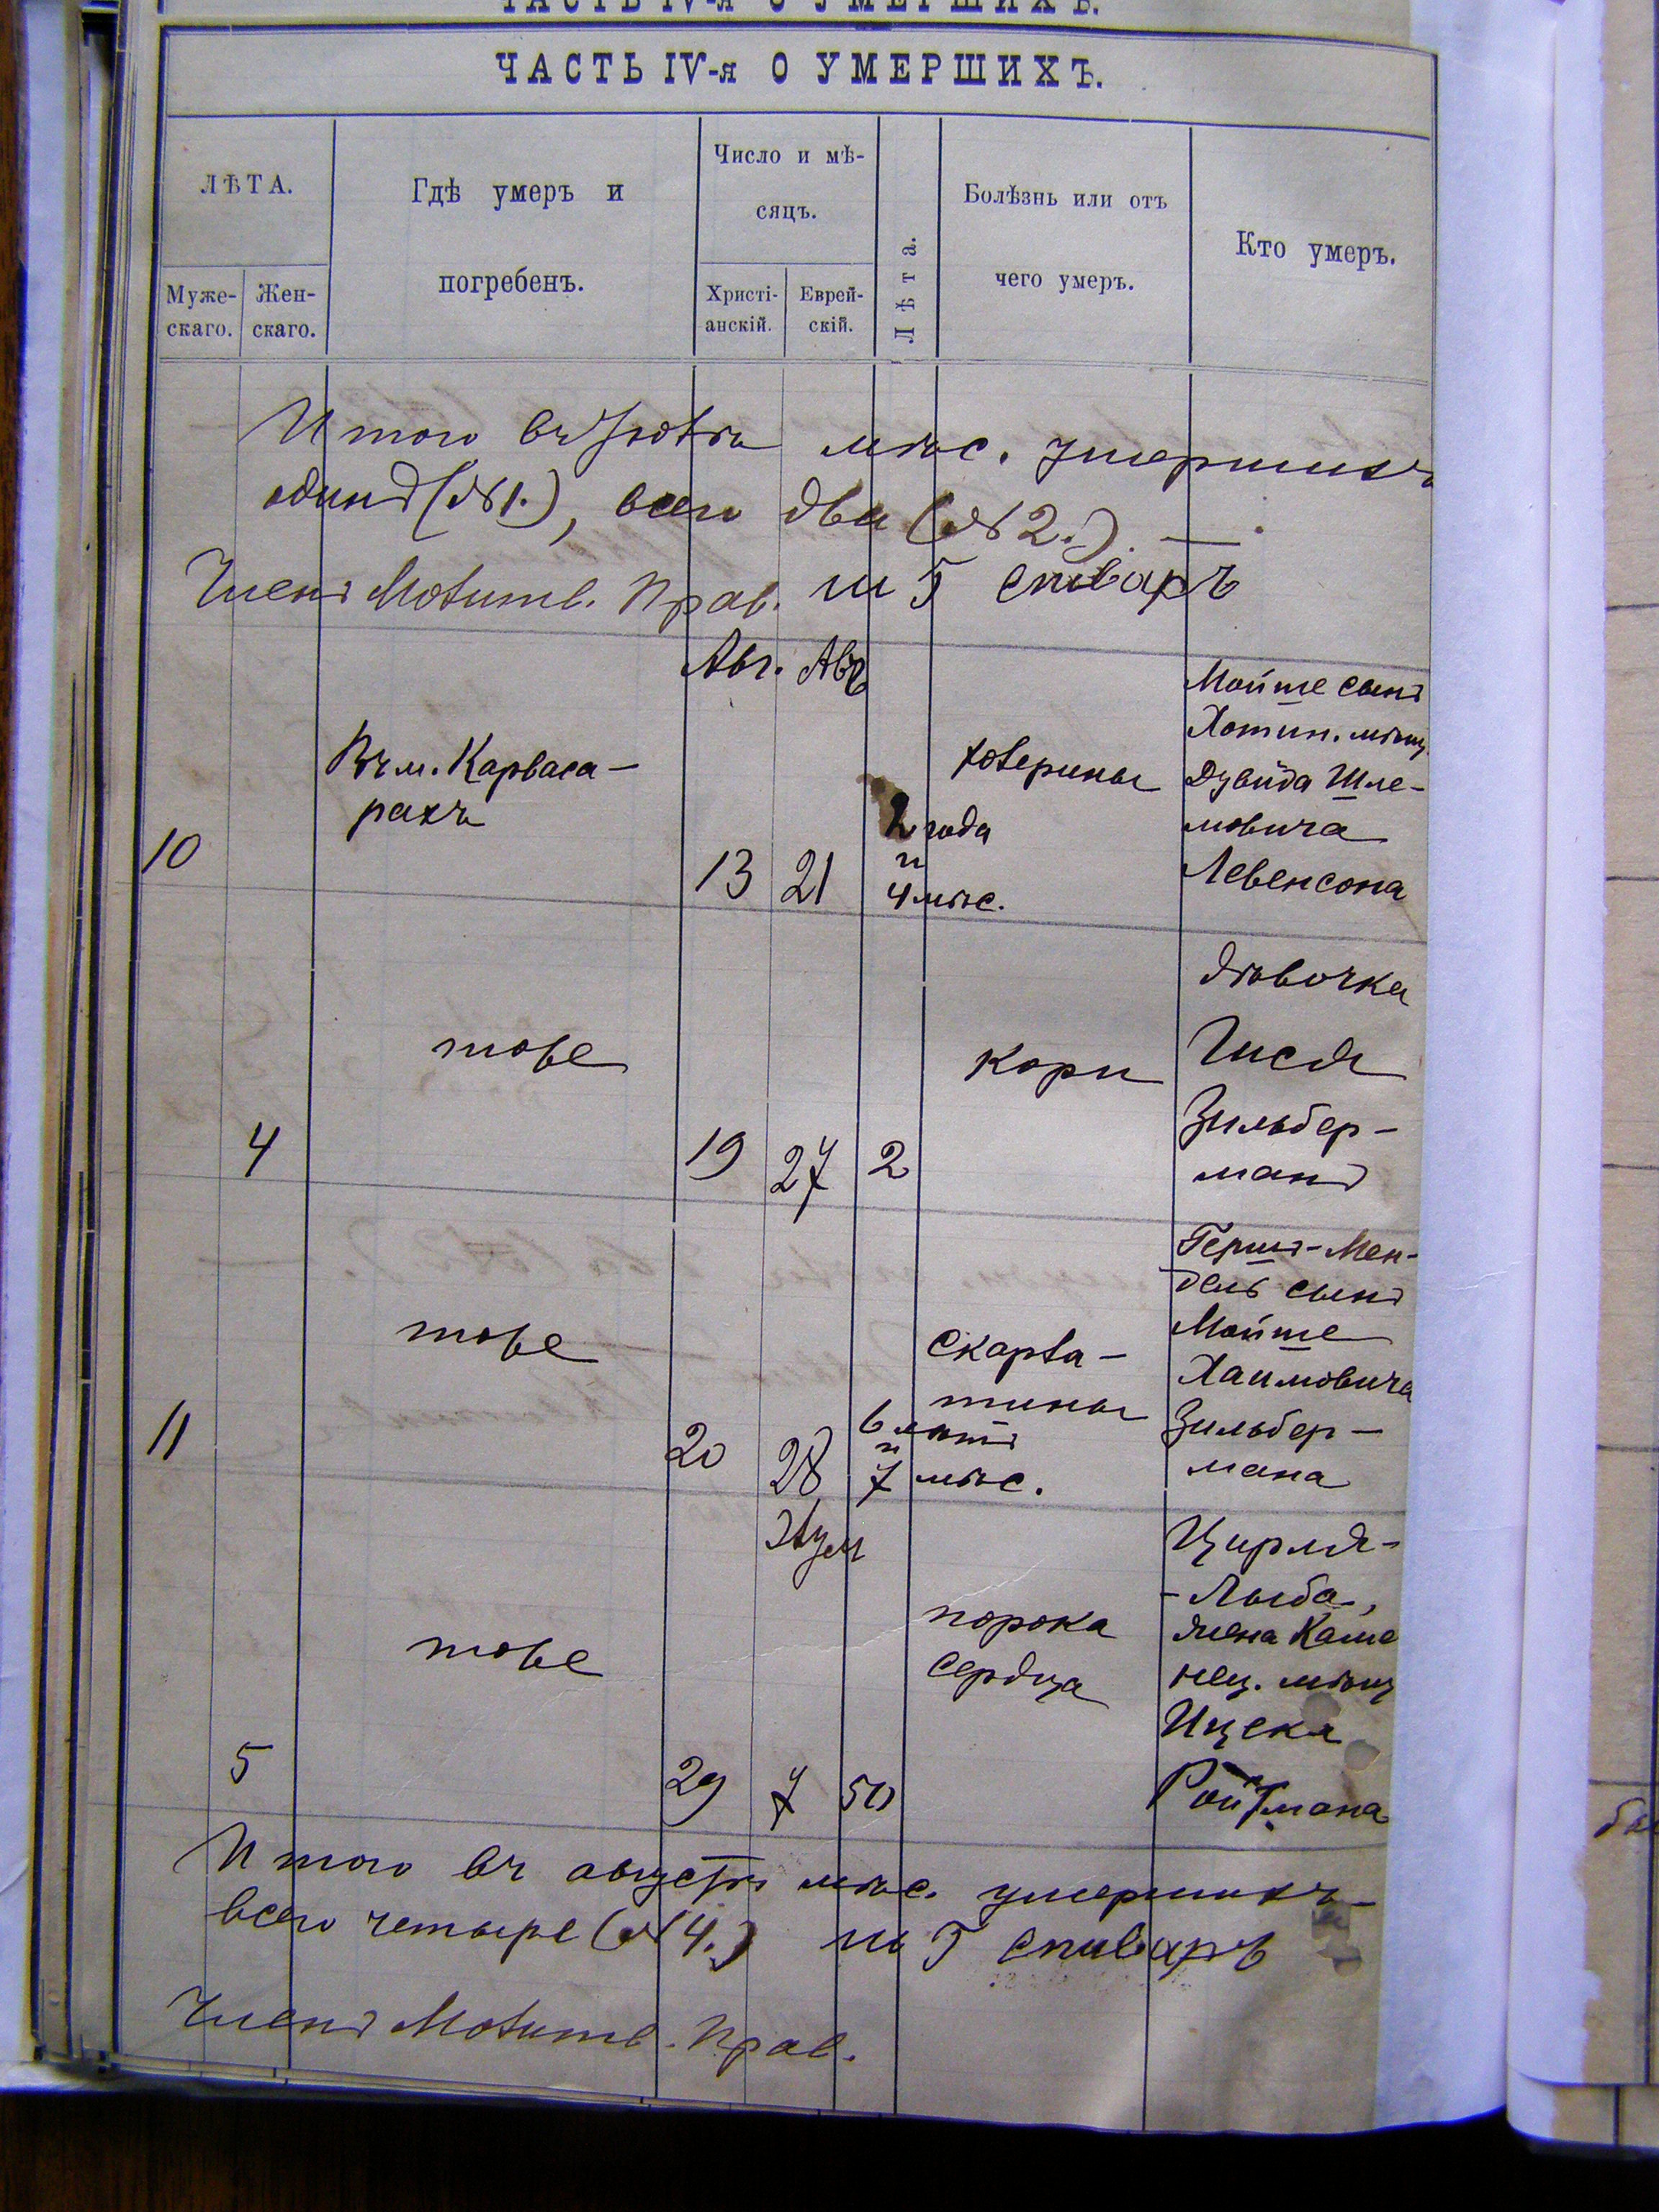 ЧАСТЬ IV-я О УМЕРШИХЪ.
ЧАСТЬ IV-я О УМЕРШИХЪ.
ЛѢТА.
Муже-
скаго.
Жен-
скаго.
Гдѣ умеръ и
погребенъ.
Число и мѣ-
сяцъ.
Христі-
анскій.
Еврей-
скій.
Лѣта.
Болѣзнь или отъ
чего умеръ.
Кто умеръ.
Итого въ Іюлѣ мѣс. умершихъ
одинъ (№ 1.), всего два (№ 2.). —
Членъ Молитв. Прав. Ш Г Спиваръ
Авг. Авъ
10
Въ м. Карваса-
рахъ
13
21
2 года
и
4 мѣс.
холерины
Мойше сынъ
Хотин. мѣщ.
Дувида Шле-
мовича
Левенсона
4
тоже
19
27
2
кори
дѣвочка
Гися
Зильбер-
манъ
11
тоже
20
28
6 лѣтъ
и
7 мѣс.
скарла-
тины
Гершъ-Мен-
дель сынъ
Мойше
Хаимовича
Зильбер-
мана
Элул
5
тоже
29
7
50
порока
сердца
Цирля-
-Лыба,
жена Каме
нец. мѣщ
Ицека
Ройтмана
Итого въ августѣ мѣс. умершихъ -
всего четыре (№ 4.) Ш Г Спиваръ
Членъ Молитв. Прав.